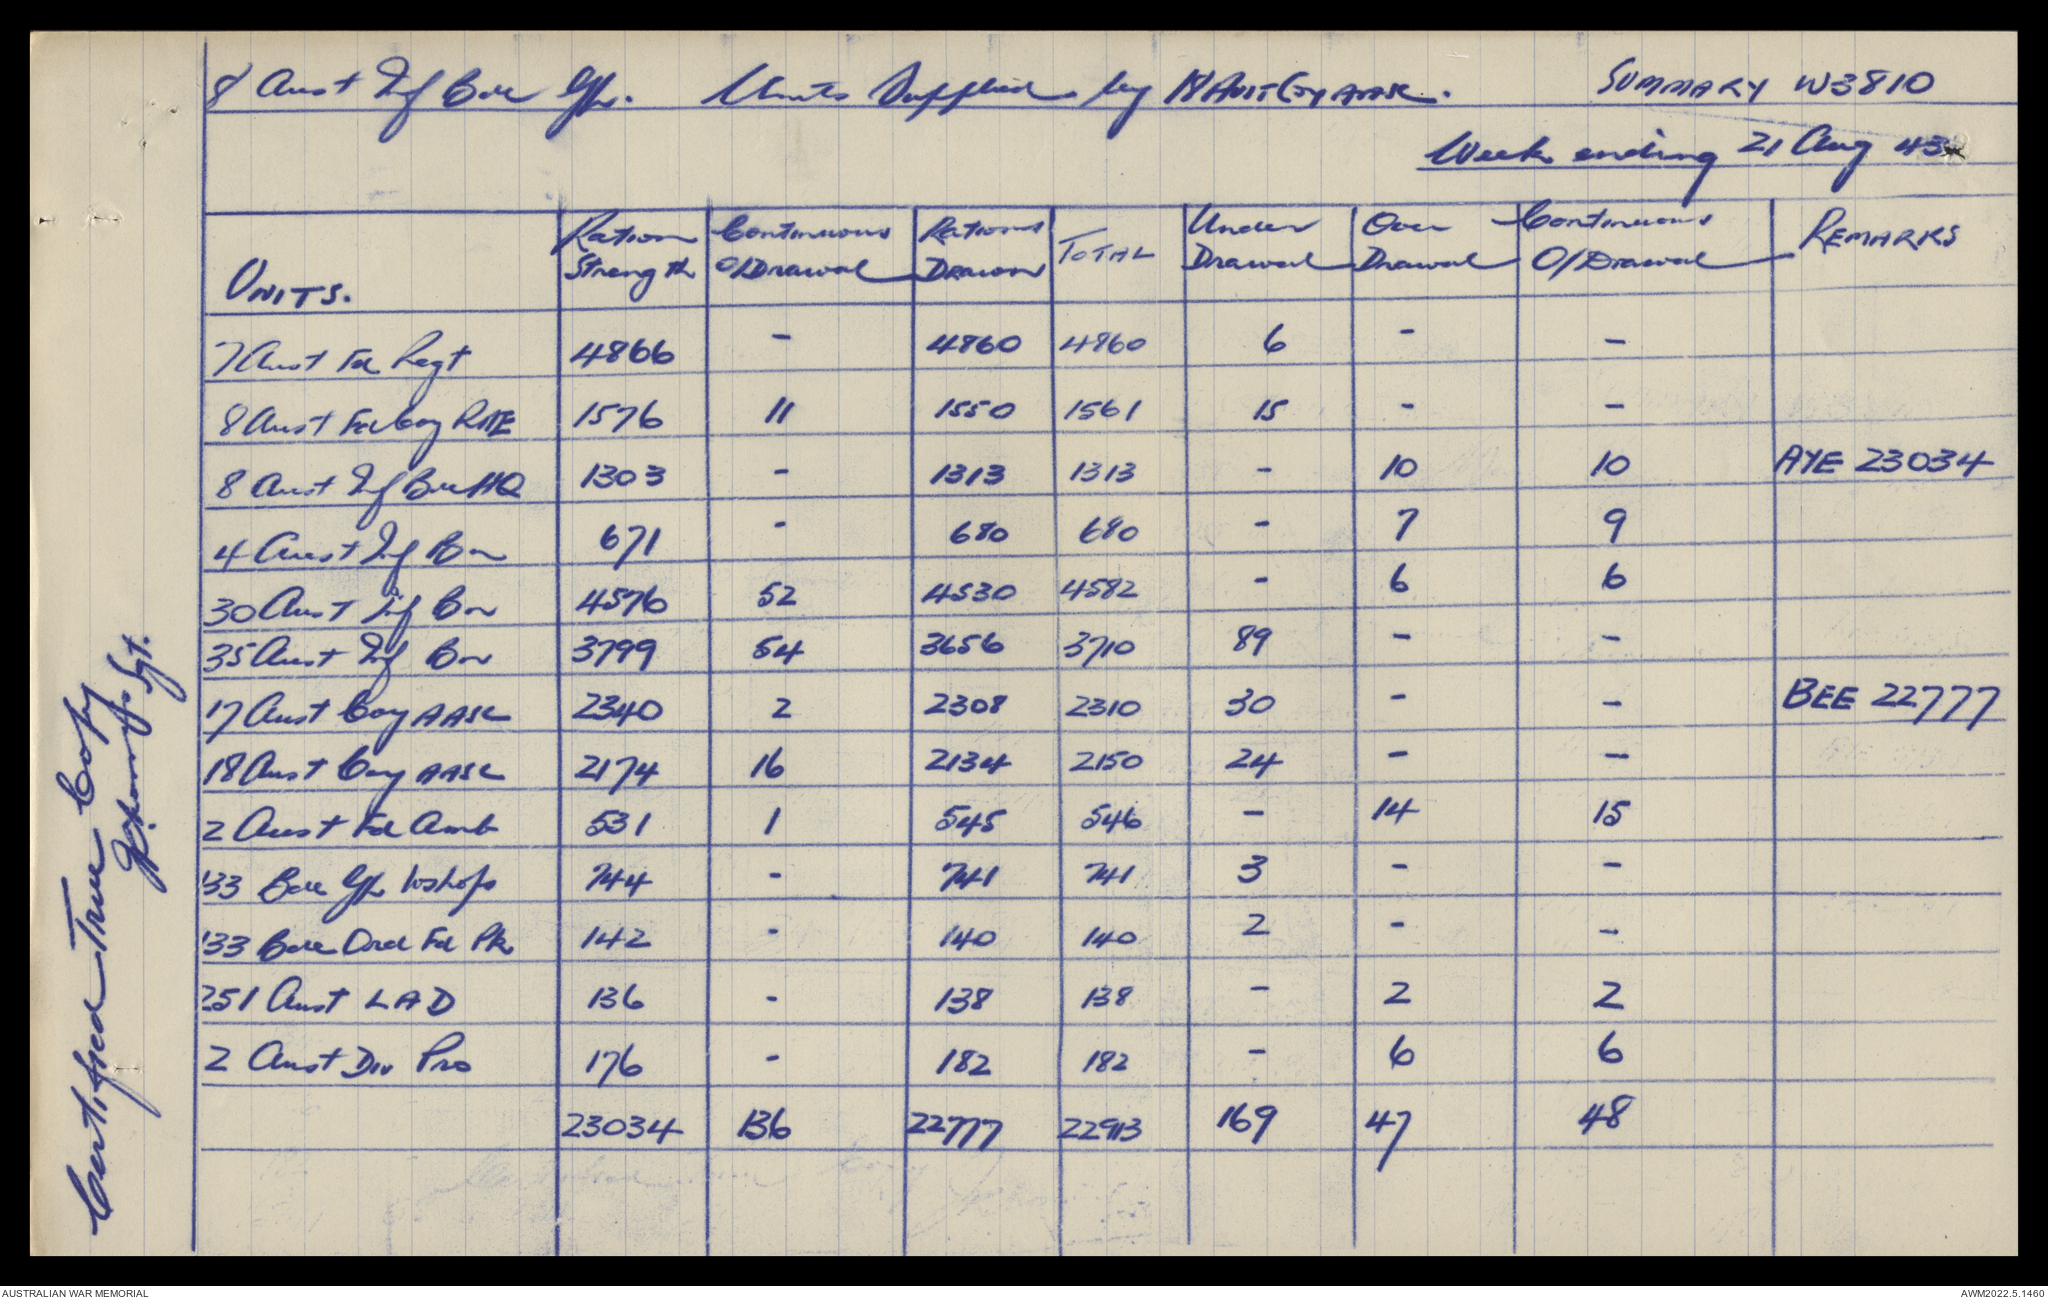 8 Aust Inf Bde Gp. Units Supplied by 18 Aust Coy AASC. SUMMARY W3810
Week ending 21 Aug 43
UNITS. Ration Strength Continuous O/Drawal Rations Drawn TOTAL Under Drawal Over Drawal Continuous O/Drawal REMARKS
7 Aust Fd Regt 4866 - 4860 4860 6 - -
8 Aust Fd Coy RAE 1576 11 1550 1561 15 - -
8 Aust Inf Bde HQ 1303 - 1313 1313 - 10 10 AYE 23034
4 Aust Inf Bn 671 - 680 680 - 7 9
30 Aust Inf Bn 4576 52 4530 4582 - 6 6
35 Aust Inf Bn 3799 54 3656 3710 89 - -
17 Aust Coy AASC 2340 2 2308 2310 30 - - BEE 22777
18 Aust Coy AASC 2174 16 2134 2150 24 - -
2 Aust Fd Amb 531 1 545 546 - 14 15
133 Bde Gp Wshops 744 - 741 741 3 - -
133 Bde Ord Fd Pk 142 - 140 140 2 - -
251 Aust LAD 136 - 138 138 - 2 2
2 Aust Div Pro 176 - 182 182 - 6 6
23034 136 22777 22913 169 47 48
Certified True Copy
Sgt.
AUSTRALIAN WAR MEMORIAL AWM2022.5.1460